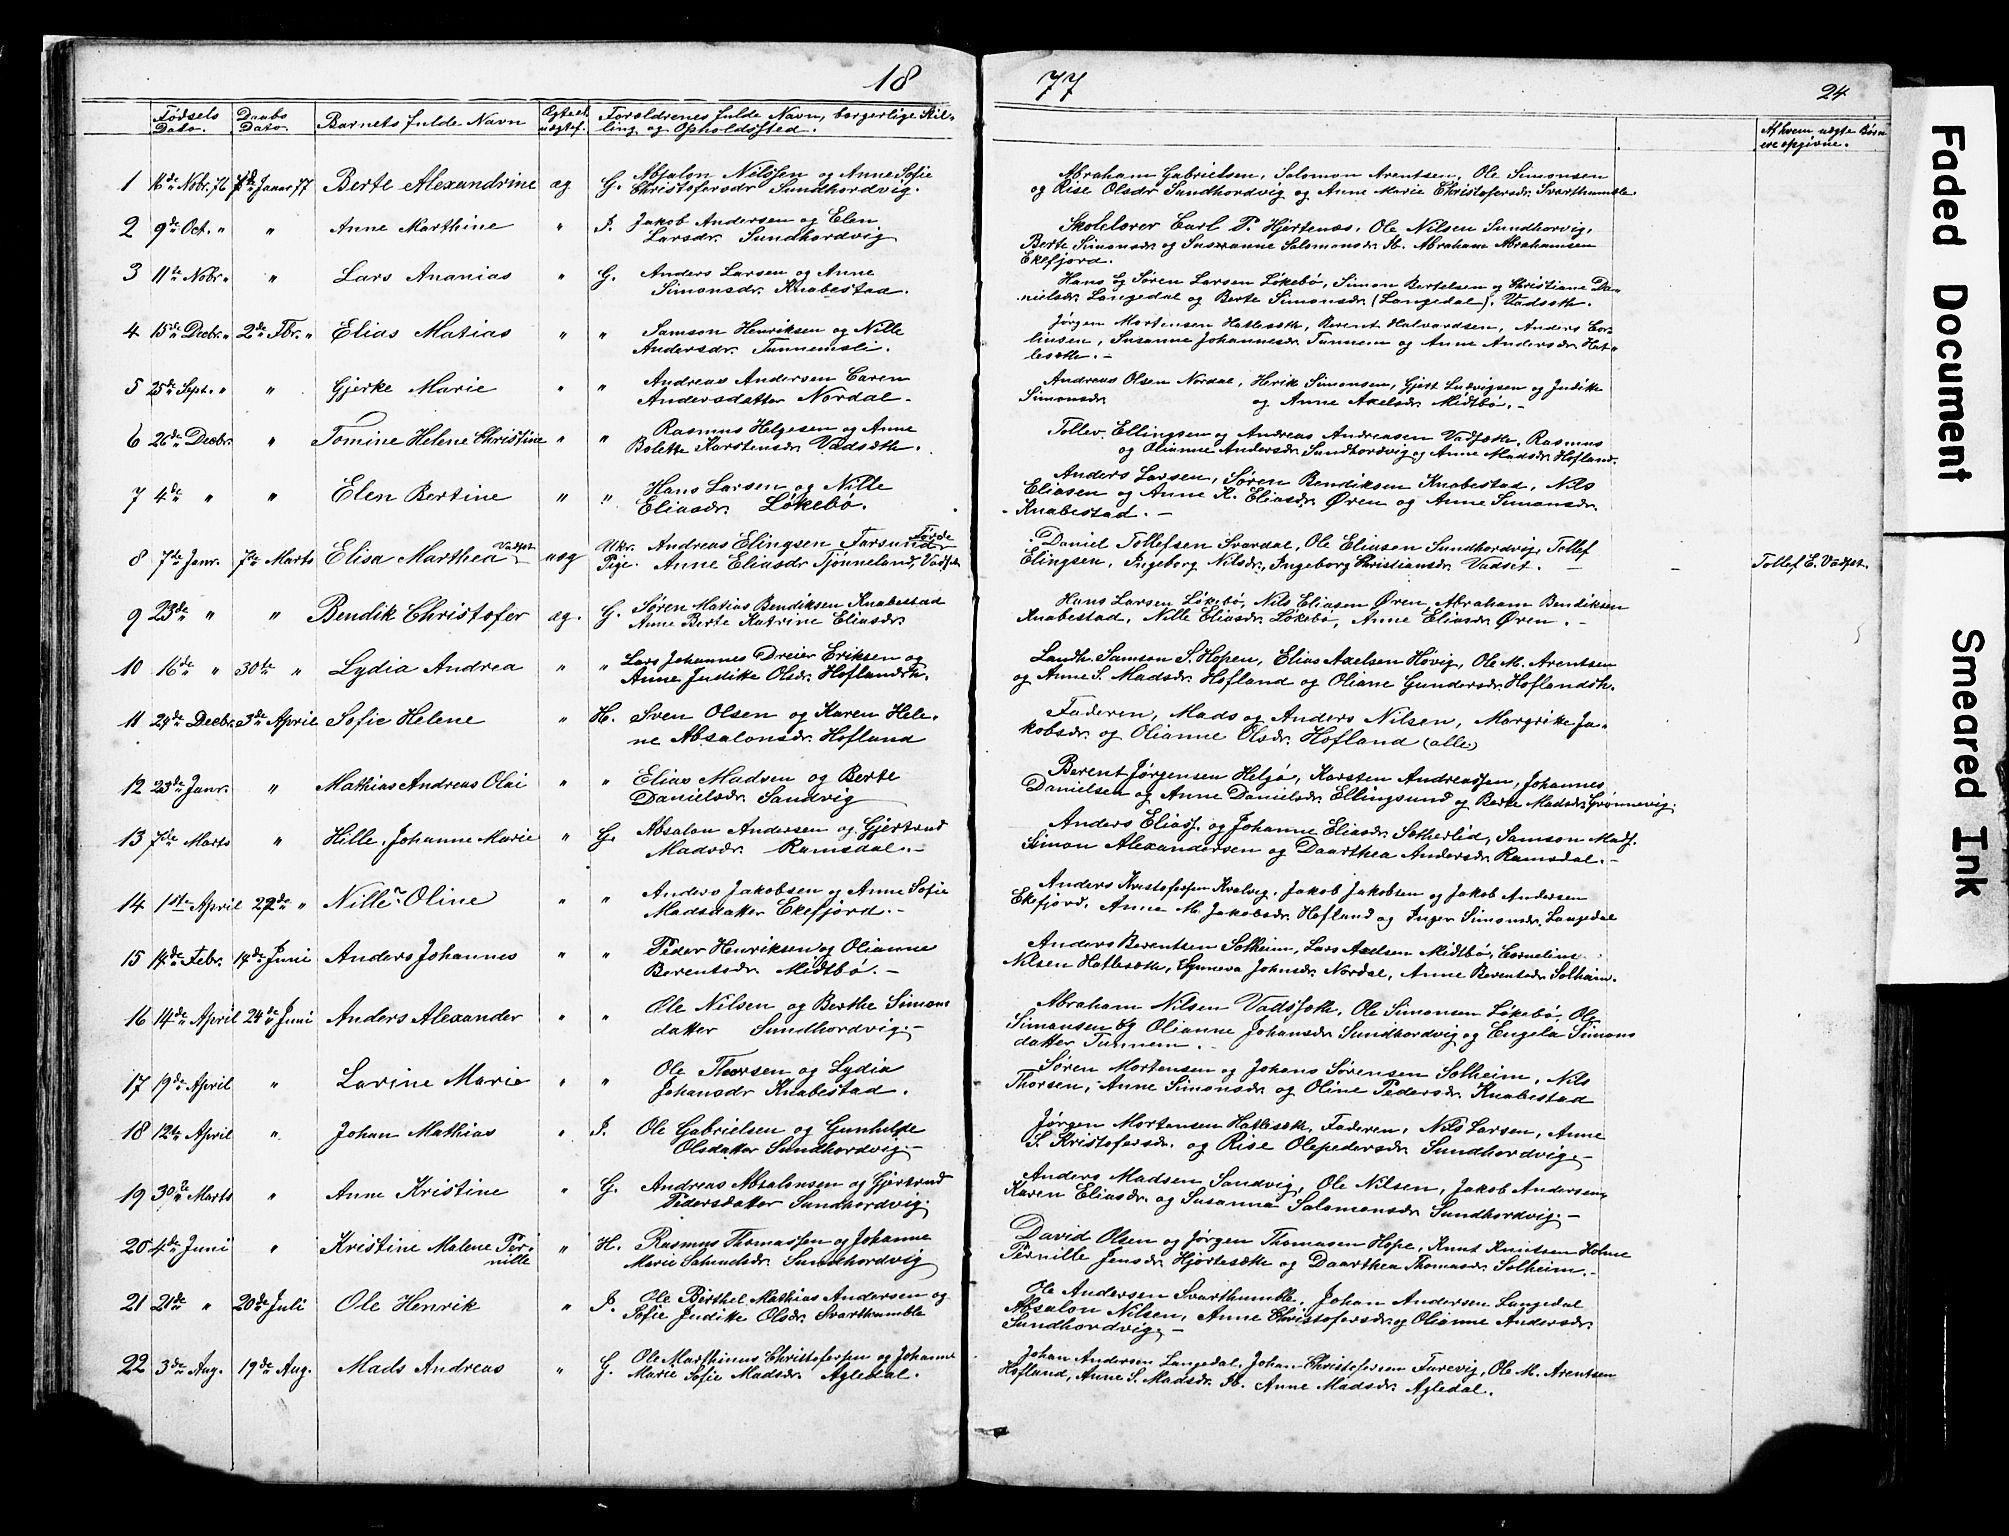 18
77
24
Fødsels Dato. Daabs Dato Barnets fulde Navn Ægte el. uægtef. Forældrenes fulde Navn, borgerlige Stil-
ling og Opholdssted.
Af hvem uægte Børn
ere opgivne.
1 16de Nobr. 76 1de Januar 77 Berte Alexandrine æg G. Absalon Nilssen og Anne Sofie
Christofersdr Sundhordvig.
Abraham Gabrielsen, Salomon Arentsen, Ole Simonsen
og Rise Olsdr Sundhordvig og Anne Marie Christofersdr. Svarthumle.
2 9de Oct. " " Anne Marthine " I. Jakob Andersen og Elen
Larsdr. Sundhordvig
Skolelærer Carl P. Hjertenæs, Ole Nilsen Sundhorvig,
Berte Simonsdr og Susanne Salomonsdr Ib. Abraham Abrahamsen
Ekefjord.
3 11te Nobr. " " Lars Ananias " G. Anders Larsen og Anne
Simonsdr. Knabestad.
Hans og Søren Larsen Løkebø, Simon Bertelsen og Christiane Da-
nielsdr. Langedal og Berte Simonsdr. (Langedal). Vadsæth.
4 15de Decbr. " 2de Fbr. " Elias Matias " " Samson Henriksen og Nille
Andersdr. Tunnemsli.
Jørgen Mortensen Hatlesæth, Berent Halvardsen, Anders Cor-
linsen, Susanne Johannesdr. Tunnem og Anne Andersdr. Hat-
lesæth. -
5 25de Sept. " " Gjerke Marie " " Andreas Andersen Caren
Andersdatter Nordal.
Andreas Olsen Nordal, Herik Simonsen, Gjert Ludvigsen og Judike
Simonsdr og Anne Axelsdr. Midtbø. -
6 26de Decbr. " Tomine Helene Christine " " Rasmus Helgesen og Anne
Bolette Karstensdr Vadsæth.
Tollev Ellingsen og Andreas Andreasen Vadsæth. Rasmus
og Olianne Andersdr. Sundhordvig og Anne Madsdr. Hofland.
7 4de " " Elen Bertine " " Hans Larsen og Nille
Eliasdr. Løkebø.
Anders Larsen, Søren Bendiksen Knabestad, Nils
Eliasen og Anne K. Eliasdr. Øren og Anne Simonsdr.
Knabestad. -
8 7de Janr. 7de Marts Elisa Marthea Vadset uæg Ukr. Andreas Elingsen Farsund Førde
Pige. Anne Eliasdr Tjønneland, Vadset
Daniel Tollefsen Svardal, Ole Eliasen Sundhordvig, Tollef
Elingsen, Ingeborg Nilsdr., Ingeborg Christiansdr. Vadset. -
Tollef E. Vadset.
9 23de " " Bendik Christofer æg. G. Søren Matias Bendiksen Knabestad
Anne Berte Katrine Eliasdr.
Hans Larsen Løkebø, Nils Eliasen Øren, Abraham Bendiksen
Knabestad, Nille Eliasdr Løkebø, Anne Eliasdr Øren. -
10 16de " 30te " Lydia Andrea " " Lars Johannes Dreier Eriksen og
Anne Judikke Olsdr. Hoflandsh.
Landh. Samson S. Hopen, Elias Axelsen Høvig, Ole M. Arentsen
og Anne S. Madsdr. Hofland og Oliane Gundersdr. Hoflandsh.
11 24de Decbr. 3de April Sofie Helene " H. Sven Olsen og Karen Hele-
ne Absalonsdr. Hofland
Faderen, Mads og Anders Nilsen, Margrike Ja-
kobsdr. og Olianne Olsdr. Hofland (alle)
12 23de Janr. " Mathias Andreas Olai " " Elias Madsen og Berte
Danielsdr. Sandvig
Berent Jørgensen Helgø, Karsten Andreassen, Johannes
Danielsen og Anne Danielsdr. Ellingsund og Berte Madsdr. Grønnevig.
13 7de Marts " Hille Johanne Marie " G. Absalon Andersen og Gjertrud
Madsdr. Ramsdal. -
Anders Eliass. og Johanne Eliasdr Sætherlid, Samson Mads.
Simon Alexandersen og Daarthea Andersdr Ramsdal. -
14 1ste April 22de " Nille Oline " " Anders Jakobsen og Anne Sofie
Madsdatter Ekefjord. -
Anders Kristofersen Kvalvig, Jakob Jakobsen og Jakob Andersen
Ekefjord. Anne M. Jakobsdr. Hofland og Inger Simonsdr. Langedal
15 14de Febr. 14de Juni Anders Johannes " " Peder Henriksen og Olianne
Berentsdr. Midtbø. -
Anders Berentsen Solheim, Lars Axelsen Midtbø, Cornelius
Nilsen Hatlesæth, Gunneva Johnsdr. Nordal, Anne Berentsdr Solheim.
16 14de April 24de Juni Anders Alexander " " Ole Nilsen og Berthe Simons
datter Sundhordvig. -
Abraham Nilsen Vadssæth, Ole Simonsen Løkebø, Ole
Simonsen og Olianne Johansdr. Sundhordvig og Engela Simons
datter Tunnem. -
17 19de April " Lavine Marie " " Ole Thorsen og Lydia
Johansdr Knabestad.
Søren Mortensen og Johans Sørensen Solheim, Nils
Thorsen, Anne Simonsdr. og Oline Pedersdr. Knabestad
18 12te April " Johan Mathias " I. Ole Gabrielsen og Gunhilde
Olsdatter Sundhordvig. -
Jørgen Mortensen Hatlesæth, Faderen, Nils Larsen, Anne
S. Kristofersdr. og Rise Olepedersdr. Sundhordvig. -
19 30te Marts " Anne Kristine " G. Andreas Absalonsen og Gjertrud
Pedersdatter Sundhordvig.
Anders Madsen Sandvig, Ole Nilsen, Jakob Andersen,
Karen Eliasdr. og Susanna Salomonsdr Sundhordvig. -
20 4de Juni " Kristine Malene Per-
nille " H. Rasmus Thomassen og Johanne
Marie Salmelsdr. Sundhordvig
David Olsen og Jørgen Thomasen Hope, Knut Knutsen Holme
Pernille Jensdr. Hjørtesæth og Daarthea Thomasdr. Solheim. -
21 21de " 20de Juli Ole Henrik " I. Ole Berthel Mathias Andersen og
Sofie Judikke Olsdr. Svarthumble
Ole Andersen Svarthumble, Johan Andersen Langedal
Absalon Nilsen, Anne Christofersdr og Olianne Andersdr.
Sundhordvig. -
22 3de Aug. 19de Aug. Mads Andreas " G. Ole Marthinus Christofersen og Johanne
Marie Sofie Madsdr. Agledal.
Johan Andersen Langedal, Johan Christofersen Furevig, Ole M. Arentsen
Hofland, Anne S. Madsdr. Ib. Anne Madsdr. Agledal.
Faded Document
Smeared Ink